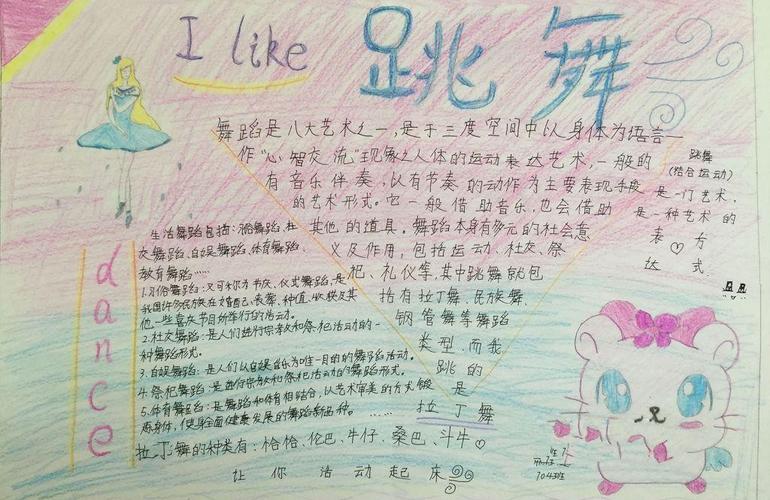 I like 跳舞
舞蹈是八大艺术之一,是于三度空间中以身体为语言
作"心智交流"现象之人体的运动表达艺术,一般的
有音乐伴奏,以有节奏的动作为主要表现手段
的艺术形式。它一般借助音乐,也会借助
其他的道具。舞蹈本身有多元的社会意
义及作用,包括运动、社交、祭
祀、礼仪等,其中跳舞就包
括有拉丁舞、民族舞、
钢管舞等舞蹈
类型,而我
跳的
是
拉丁舞
跳舞
(结合运动)
是一门艺术,
是一种艺术的
表♡方
达式.
dance
生活舞蹈包括:习俗舞蹈、社
交舞蹈、自娱舞蹈、体育舞蹈、
教育舞蹈……
1.习俗舞蹈:又可称为节庆、仪式舞蹈,是
我国许多民族在婚配、丧葬、种植、收获及其
他一些喜庆节日所举行的活动。
2.社交舞蹈:是人们进行宗教和祭祀活动的一
种舞蹈形式。
3.自娱舞蹈:是人们以自娱自乐为唯一目的的舞蹈活动。
4.祭祀舞蹈:是进行宗教和祭祀活动的舞蹈形式。
5.体育舞蹈:是舞蹈和体育相结合,以艺术审美的方式锻
炼身体,使身心全面健康发展的舞蹈新品种。……
拉丁舞的种类有:恰恰、伦巴、牛仔、桑巴、斗牛♡
让你活动起床
704班